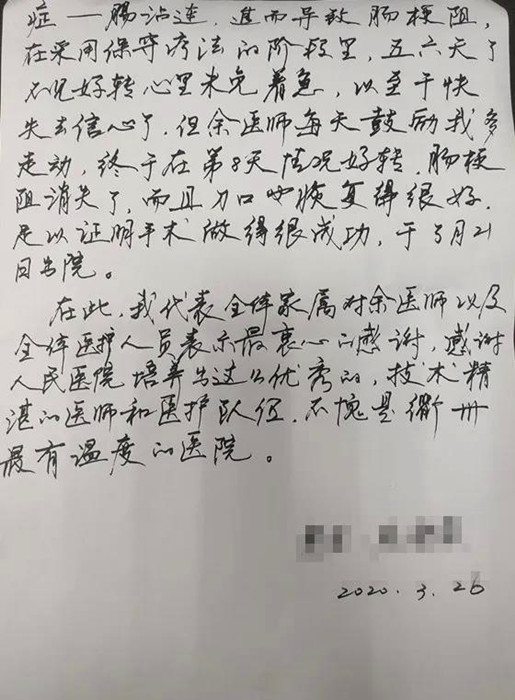 症——肠沾连,进而导致肠梗阻,
在采用保守疗法的阶段里,五六天了
不见好转心里未免着急,以至于快
失去信心了,但余医师每天鼓励我多
走动,终于在第8天情况好转,肠梗
阻消失了,而且刀口也恢复得很好.
足以证明手术做得很成功,于3月21
日出院。
在此,我代表全体家属对余医师以及
全体医护人员表示最衷心的感谢,感谢
人民医院培养出这么优秀的,技术精
湛的医师和医护队伍.不愧是衢州
最有温度的医院。
2020.3.26